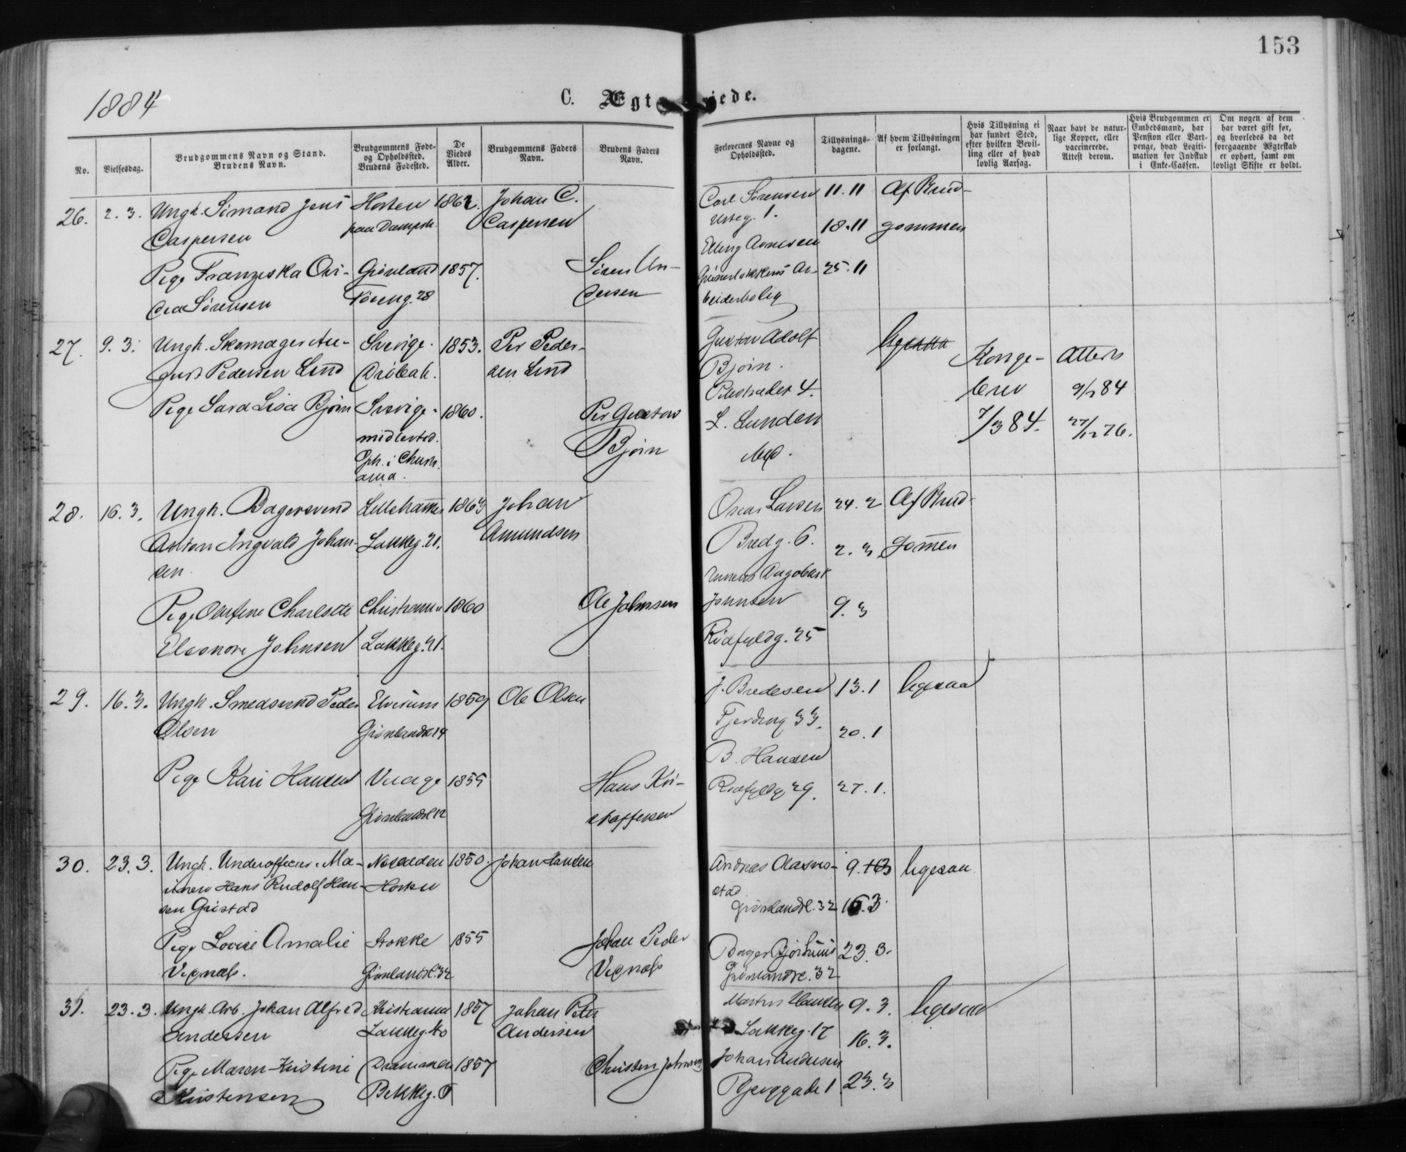 153
1884
C. Ægteviede.
No.
Vielsesdag.
Brudgommens Navn og Stand.
Brudens Navn.
Brudgommens Føde-
og Opholdssted.
Brudens Fødested.
De
Viedes
Alder.
Brudgommens Faders
Navn.
Brudens Faders
Navn.
Forlovernes Navne og
Opholdssted.
Tillysnings-
dagene.
Af hvem Tillysningen
er forlangt.
Hvis Tillysning ei
har fundet Sted,
efter hvilken Bevil-
ling eller af hvad
lovlig Aarsag.
Naar havt de natur-
lige Kopper, eller
vaccinerede.
Attest derom.
Hvis Brudgommen er
Embedsmand, har
Pension eller Vart-
penge, hvad Legiti-
mation for Indskud
i Enke-Cassen.
Om nogen af dem
har været gift før,
og hvorledes da det
foregaaende Ægteskab
er ophørt, samt om
lovligt Skifte er holdt.
26. 2.3. Ungk. Simand Jens Horten 1862. Johan C. Carl Sørensen 11.11 Af Brud-
Caspersen paa Dampsk. Caspersen 1. 18.11 gommen
Pige Franziska Ovi- Grønland 1857. Søren An- Elling Arnesen 25.11
dea Sørensen 28 dersen Ar-
beiderbolig
27. 9.3. Ungk. Skomager Au- Sverige. 1853. Per Peder- Gustav Adolf
gust Pedersen Lind Drøbak. sen Lind Bjørn. Konge- Attest
Pige Sara Lisa Bjørn Sverige. 1860. Per Gustav Pilestrædet 4. brev 84
Bjørn L. Lunden 7/3 84. 76.
Oph. i Christi-
ania.
28. 16.3. Ungk. Bagersvend Lillehammer 1863 Johan Oscar Larsen 24.2 Af Brud-
Anton Ingvald Johan- Lakkeg. 21. Amundsen Bredg. 6. 2.3 gomen
sen. Dagobert
Pige Olufine Charlotte Christiania 1860 Ole Johnsen Jonnsen 9.3
Eleonore Johnsen Lakkeg. 21. Rødfyldg. 25
29. 16.3. Ungk. Smedsvend Peder Elverum 1859 Ole Olsen J. Bredesen 13.1 ligesaa
Olsen Grønlandsl. 14 Fjerding 33. 20.1
Pige Kari Hansen 1855 Hans Kri- B. Hansen
Grønlandsl. 12 stoffersen Rødfyldg 29. 27.1.
30. 23.3. Ungk. Underofficer i Ma- Nesodden 1850. Johan Hansen Andreas 9.3 ligesaa
rinen Hans Rudolf Han- Horten stad
sen Gristad Grønlandsl. 32 16.3.
Pige Lovise Amalie Stokke 1855 Johan Peder Bager 23.3.
Vegnæs. Grønlandsl. 32 Vegnæs Grønlandsl. 32
31. 23.3. Ungk. Arb. Johan Alfred Kristiania 1857 Johan Peter Martin Hansen 9.3. ligesaa
Andersen Lakkeg. 40 Andersen Lakkeg. 17 16.3.
Pige Maren Kristine Drammen 1857 Christen Johnsen Johan Andersen
Kristensen Bekkeg. 8 Bjerggade 1. 23.3